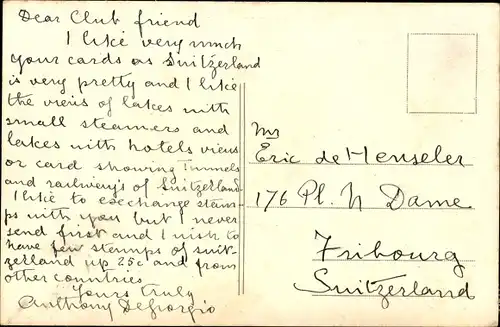 Dear Club friend
I like very much
your cards as Suitzerland
is very pretty and I like
the views of lakes with
small steamers and
lakes with hotels views
or card showing Tunnels
and railway's of Suitzerland
I like to exechange stam-
ps with you but never
send first and I wish to
have few stamps of suit-
zerland up 25c and from
other countries
Yours truly
Anthony DeGiorgio
Mr
Eric de Henseler
176 Pl. N Dame
Fribourg
Suitzerland